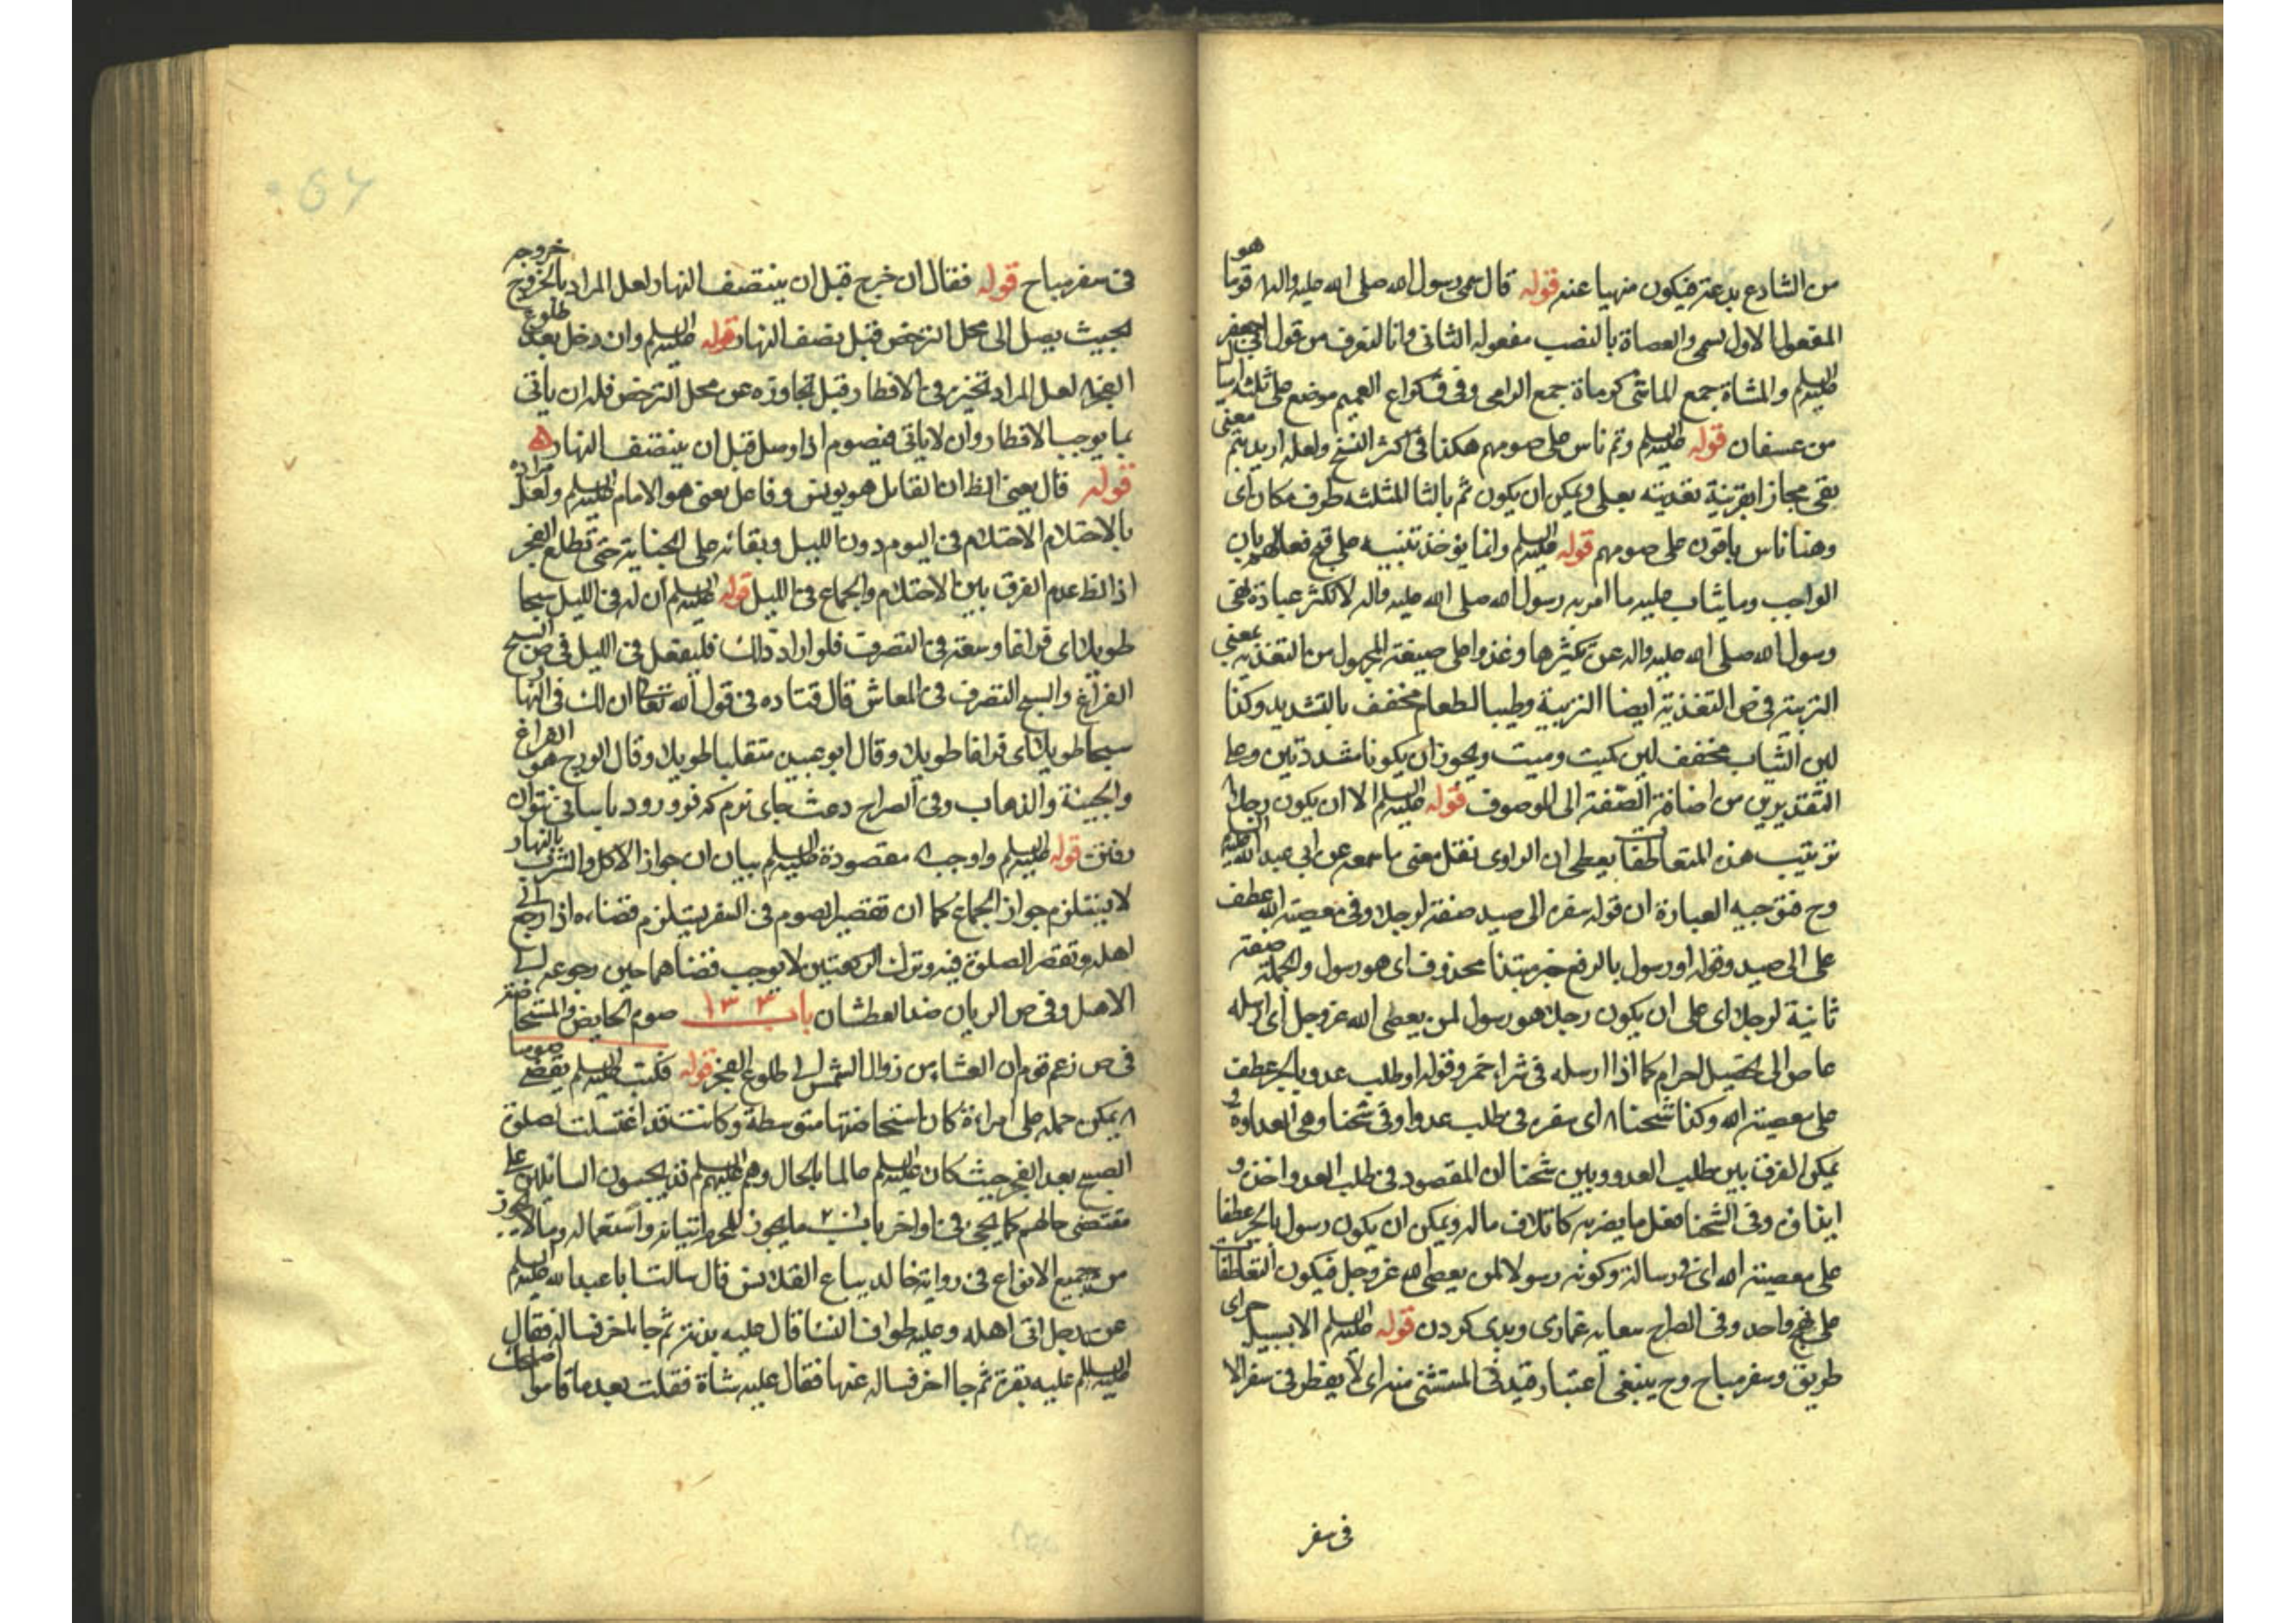 من الشارع بدعة فيكون منهيا عنه قوله قال سمى رسول الله صلى الله عليه واله قوما هو
المفعول الاول لسمى والعصاة بالنصب مفعوله الثانى وانا لنعرف من قول ابي جعفر
عليه السلم والمشاة جمع الماشى كرماة جمع الرامى وفى ق كراع الغميم موضع على ثلثة اميال
من عسفان قوله عليه السلم وتم ناس على صومهم هكذا فى اكثر النسخ ولعله اريد بتم معنى
بقى مجازا بقرينة تعديته بعلى ويمكن ان يكون ثم بالثا المثلثه ظرف مكان اى
وهنا ناس باقون على صومهم قوله عليه السلم وانما يوخذ تنبيه على قبح فعالهم بان
الواجب وما يثاب عليه ما امر به رسول الله صلى الله عليه واله لا تكثر عبادة نهى
رسول الله صلى الله عليه واله عن تكثرها وغذوا على صيغة المجهول من التغذيه بمعنى
التربية فى ص التغذية ايضا التربية وطيب الطعام مخفف بالتشديد وكذا
لين الثياب مخفف لين كميت وميت ويجوز ان يكونا مشددتين وعلى
التقديرين من اضافة الصفة الى الموصوف قوله عليه السلم الا ان يكون رجلا
ترتيب هذه المتعاطفات يعطى ان الراوى نقل معنى ما سمعه عن ابي عبد الله عليه السلم
وح فتوجيه العبارة ان قوله سفره الى صيد صفة لرجلا وفى معصية الله عطف
على الى صيد وقوله او رسول بالرفع خبر مبتدا محذوف اى هو رسول والجملة صفة
ثانية لرجلا اى على ان يكون رجلا هو رسول لمن يعصى الله عز وجل اى ارسله
عاص الى تحصيل الحرام كما اذا ارسله فى شراء خمر وقوله او طلب عدو بالجر عطف
على معصية الله وكذا شحناء اى سفره فى طلب عدو او فى شحنا وهى العداوة و
يمكن الفرق بين طلب العدو وبين شحنا ان المقصود فى طلب العدو اخذه و
ايذاؤه وفى الشحنا فعل ما يضر به كاتلاف ماله ويمكن ان يكون رسول بالجر عطفا
على معصية الله اى فى رسالة وكونه رسولا لمن يعصى الله عز وجل فيكون التعاطفات
على نهج واحد وفى الصراح سعايه غمازى وبدى كردن قوله عليه السلم الا بسبيل حق اى
طريق وسفر مباح وح ينبغى اعتبار قيد فى المستثنى منه اى لا يفطر فى سفر الا
فى سفر
فى سفر مباح قوله فقال ان خرج قبل ان ينتصف النهار لعل المراد بالخروج خروجه
بحيث يصل الى محل الترخص قبل نصف النهار قوله عليه السلم وان دخل بعد طلوع
الفجر لعل المراد تخيره فى الافطار قبل تجاوزه عن محل الترخص فله ان ياتى
بما يوجب الافطار وان لا ياتى فيصوم اذا وصل قبل ان ينتصف النهار
قوله قال يعنى الظ ان القايل هو يونس وفاعل يعنى هو الامام عليه السلم ولعل مراده
بالاحتلام الاحتلام فى اليوم دون الليل وبقائه على الجنابة حتى تطلع الفجر
اذ الظ عدم الفرق بين الاحتلام والجماع فى الليل قوله عليه السلم ان له فى الليل سبحا
طويلا اى فراغا وسعة فى التصرف فلو اراد ذلك فليفعل فى الليل فى ص السبح
الفراغ والسبح التصرف فى المعاش قال قتاده فى قول الله تعالى ان لك فى النها
سبحا طويلا اى فراغا طويلا وقال ابو عبيده متقلبا طويلا وقال المورج هو الفراغ
والجيئة والذهاب وفى الصراح دمث جاى نرم كه فرو رود پا بسانى نتوان
رفتن قوله عليه السلم واوجب مقصوده عليه السلم بيان ان جواز الاكل والشرب بالنهار
لا يستلزم جواز الجماع كما ان تقصير الصوم فى السفر يستلزم قضاءه اذا رجع الى
اهله وتقصر الصلوة فيه وترك الركعتين لا يوجب قضاهما حين رجوعه الى
الاهل وفى ص الريان ضد العطشان باب ١٣٣ صوم الحايض والمستحاضة
فى ص زعم قوم ان العشا من زوال الشمس الى طلوع الفجر قوله فكتب عليه السلم يقضى صومها
يمكن حمله على امراءة كان استحاضتها متوسطة وكانت قد اغتسلت لصلوة
الصبح بعد الفجر حيث كان عليه السلم عالما بالحال وهم عليهم السلم قد يجيبون السائلين على
مقتضى حالهم كما يجئ فى اواخر باب ٢٠١ ما يجوز للمحرم اتيانه واستعماله وما لا يجوز
من جميع الانواع فى رواية خالد بياع القلانس قال سالت ابا عبد الله عليه السلم
عن رجل اتى اهله وعليه طواف النسا قال عليه بدنة ثم جا اخر فساله فقال
عليه السلم عليه بقرة ثم جا اخر فساله عنها فقال عليه شاة فقلت بعد ما قاموا اصلحك